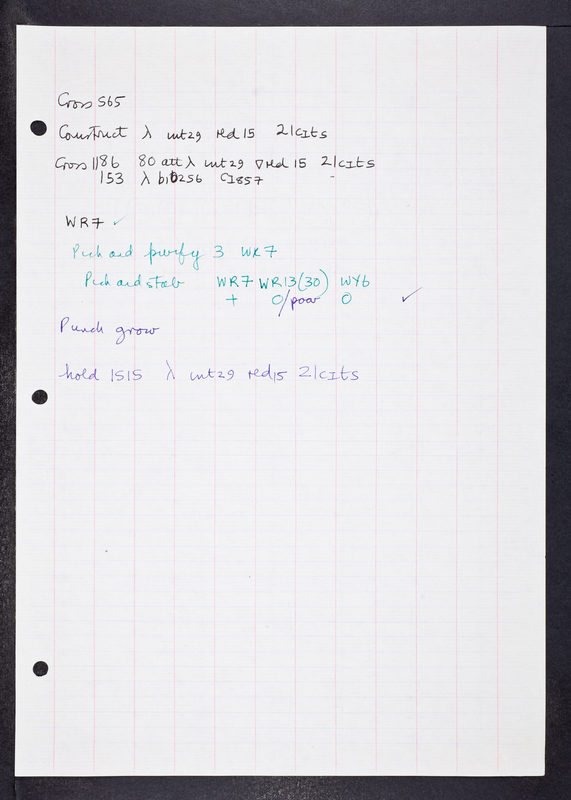 Cross 565
Construct λ int29 red15 21cIts
Cross 1186 80 att λ int29 ∇red15 21cIts
153 λ bio256 cI857
WR7 ✓
Pick and purify 3 WR7
Pick and stab WR7 WR13(30) WY6
+ 0/poor 0 ✓
Punch grow
hold 1515 λ int29 red15 21cIts